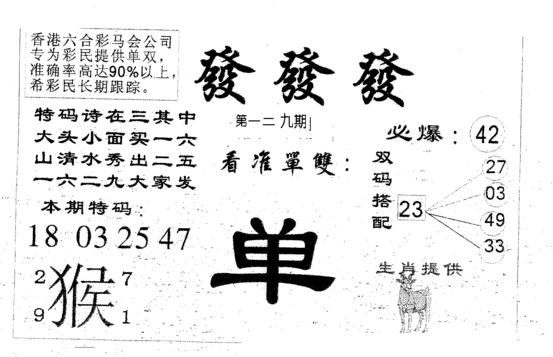 香港六合彩马会公司
专为彩民提供单双,
准确率高达90%以上,
希彩民长期跟踪。
發 發 發
第一二九期
特码诗在三其中
大头小面买一六
山清水秀出二五
一六二九大家发
本期特码:
18 03 25 47
2 7
猴
9 1
看准單雙:
单
必爆: 42
双码搭配
23
27
03
49
33
生肖提供